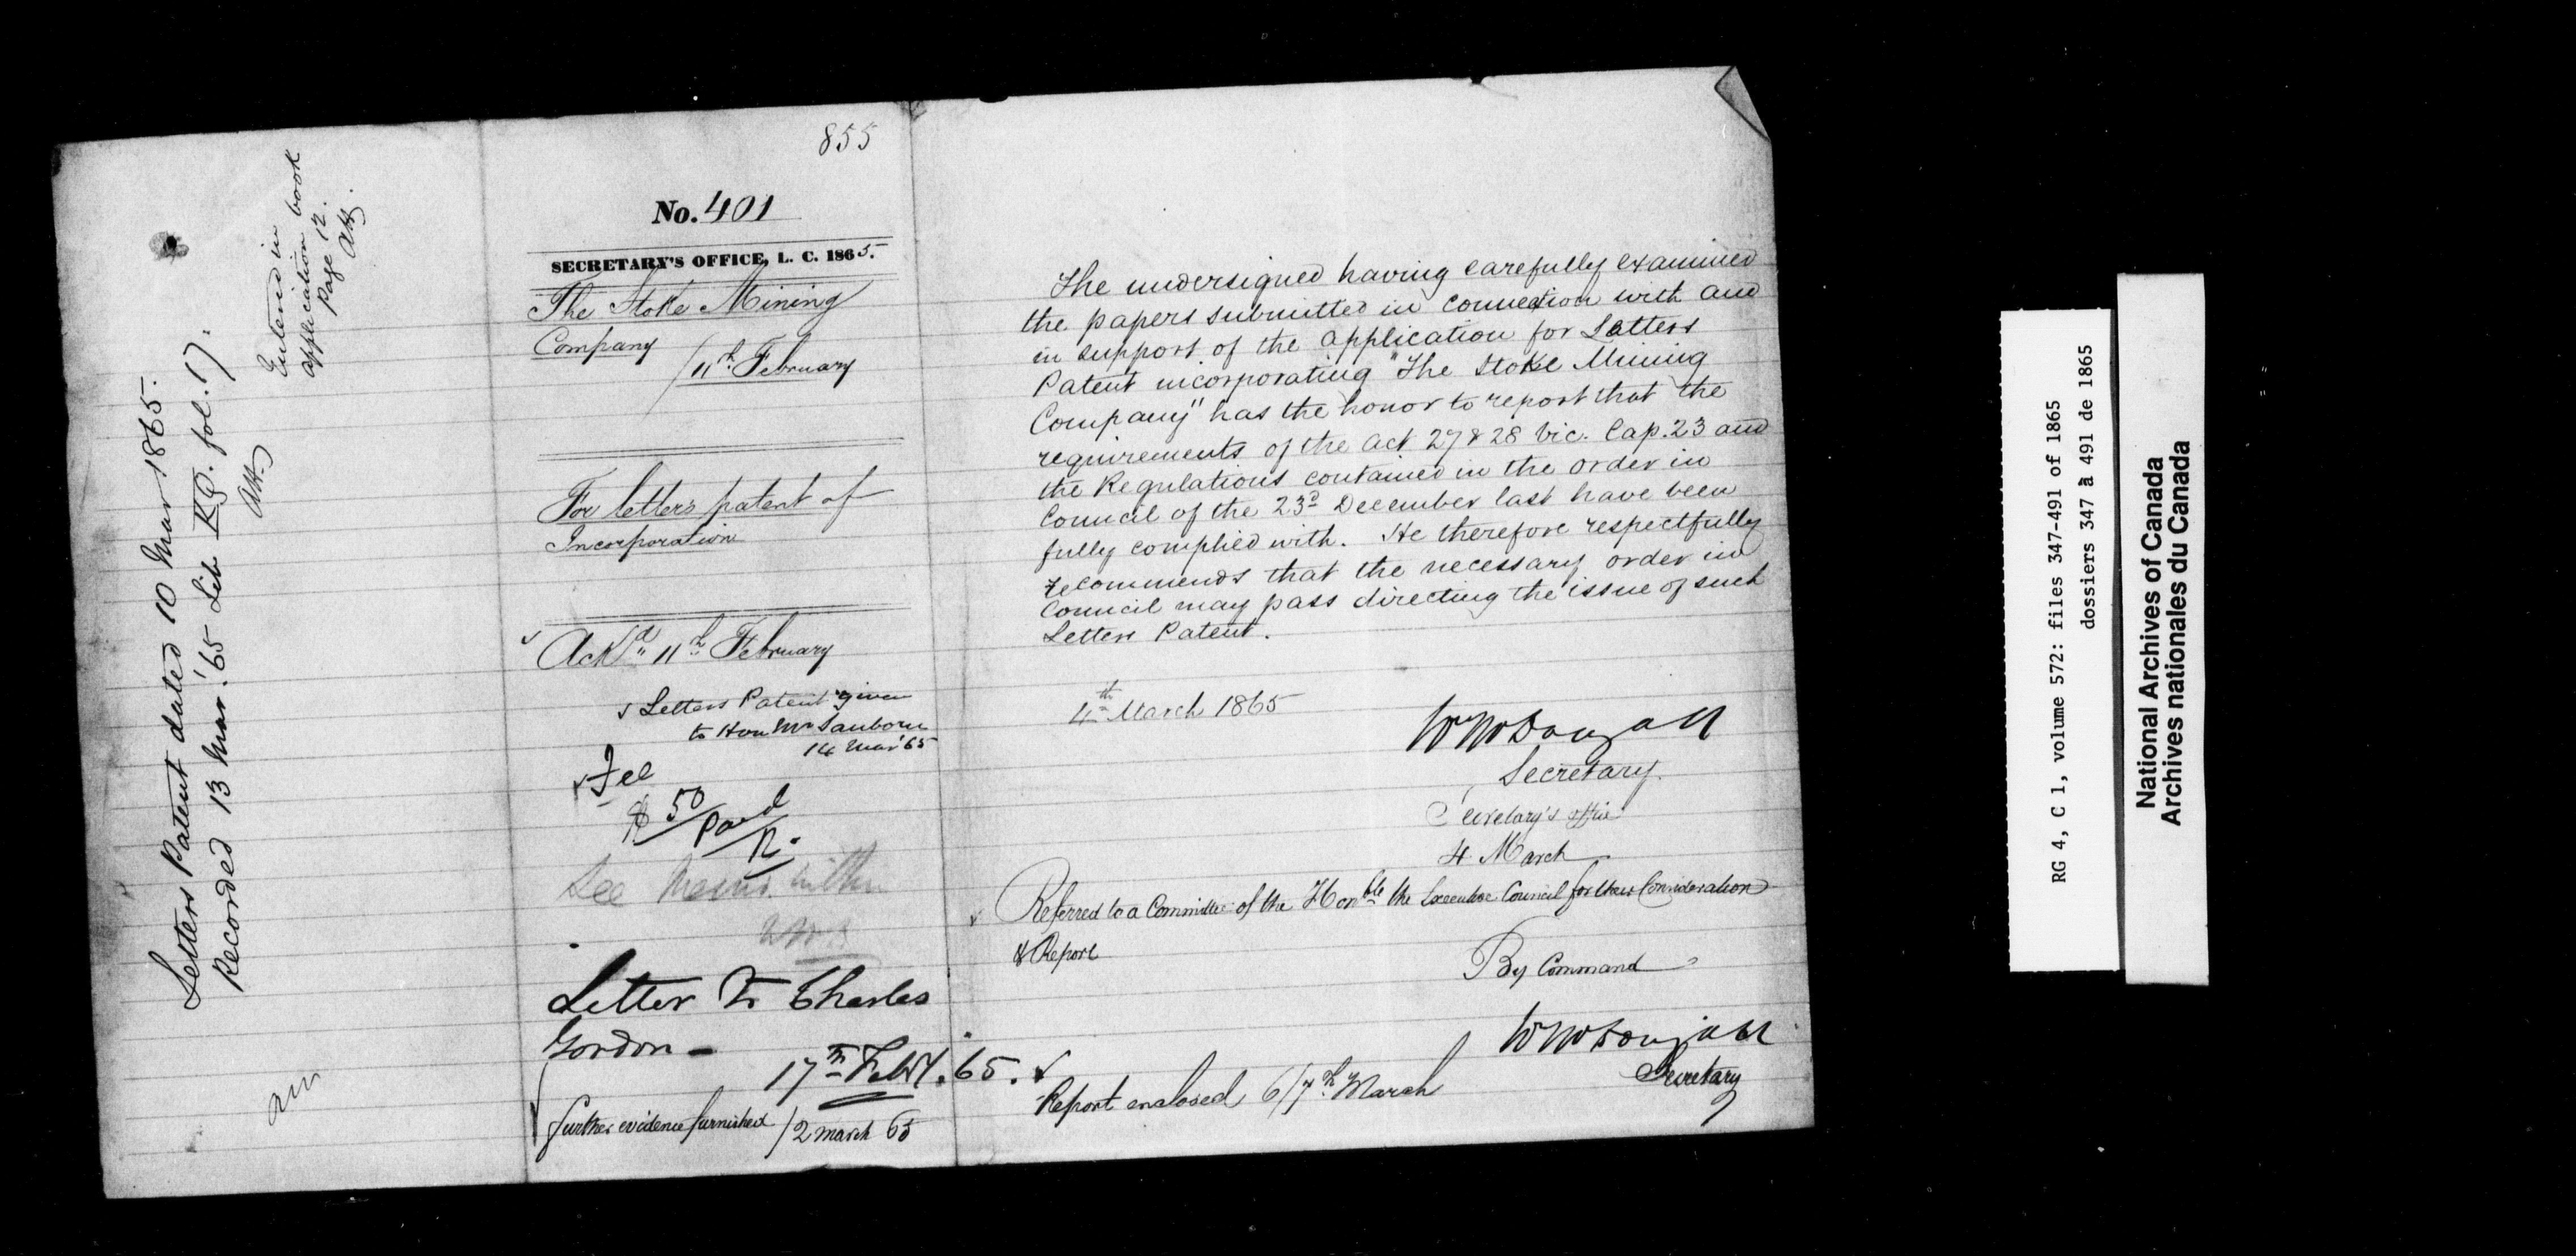 Letters Patent dated 10 Mar 1865.
Recorded 13 Mar. '65 Lib KJ. fol. 17.
AH
Entered in
application book
Page 12.
AH
855
No. 401
SECRETARY'S OFFICE, L. C. 1865.
The Stoke Mining
Company
/11th February
For letters patent of
Incorporation
Ackd 11th February
Letters Patent given
to Hon Mr Sanborn
14 Mar '65
Fee
$50/Paid
R.
See memo. within
Letter to Charles
Gordon —
17th Feby. 65.
further evidence furnished /2 March 65
The undersigned having carefully examined
the papers submitted in connection with and
in support of the application for Letters
Patent incorporating "The Stoke Mining
Company" has the honor to report that the
requirements of the Act 27 & 28 Vic. Cap. 23 and
the Regulations contained in the order in
Council of the 23d December last have been
fully complied with. He therefore respectfully
recommends that the necessary order in
Council may pass directing the issue of such
Letters Patent.
4th March 1865
Wm McDougall
Secretary.
Secretary's Office
4 March
Referred to a Committee of the Honble the Executive Council for their Consideration
& Report
By Command
Wm McDougall
Secretary
Report enclosed 6/7th March
RG 4, C 1, volume 572: files 347-491 of 1865
dossiers 347 à 491 de 1865
National Archives of Canada
Archives nationales du Canada